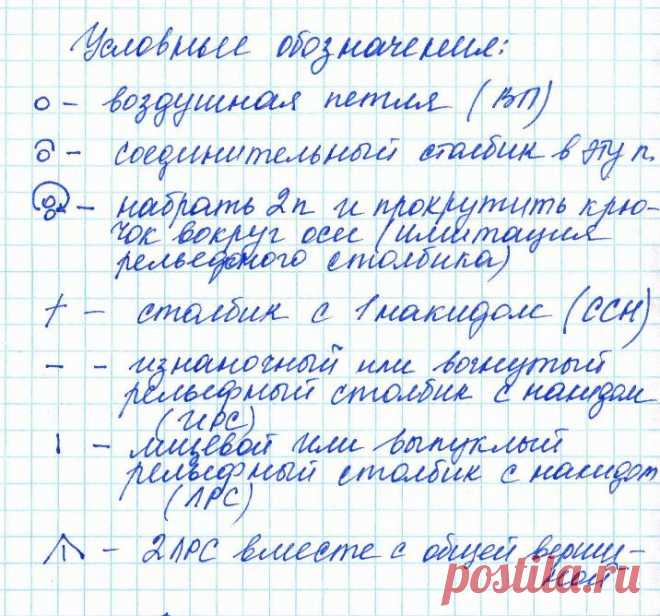 Условные обозначения:
о – воздушная петля (ВП)
– соединительный столбик в эту п.
– набрать 2п и прокрутить крю-
чок вокруг оси (имитация
рельефного столбика)
† – столбик с 1 накидом (ССН)
– – изнаночный или вогнутый
рельефный столбик с накидом
(ИРС)
ı – лицевой или выпуклый
рельефный столбик с накидом
(ЛРС)
– 2ЛРС вместе с общей верши-
ной
postila.ru